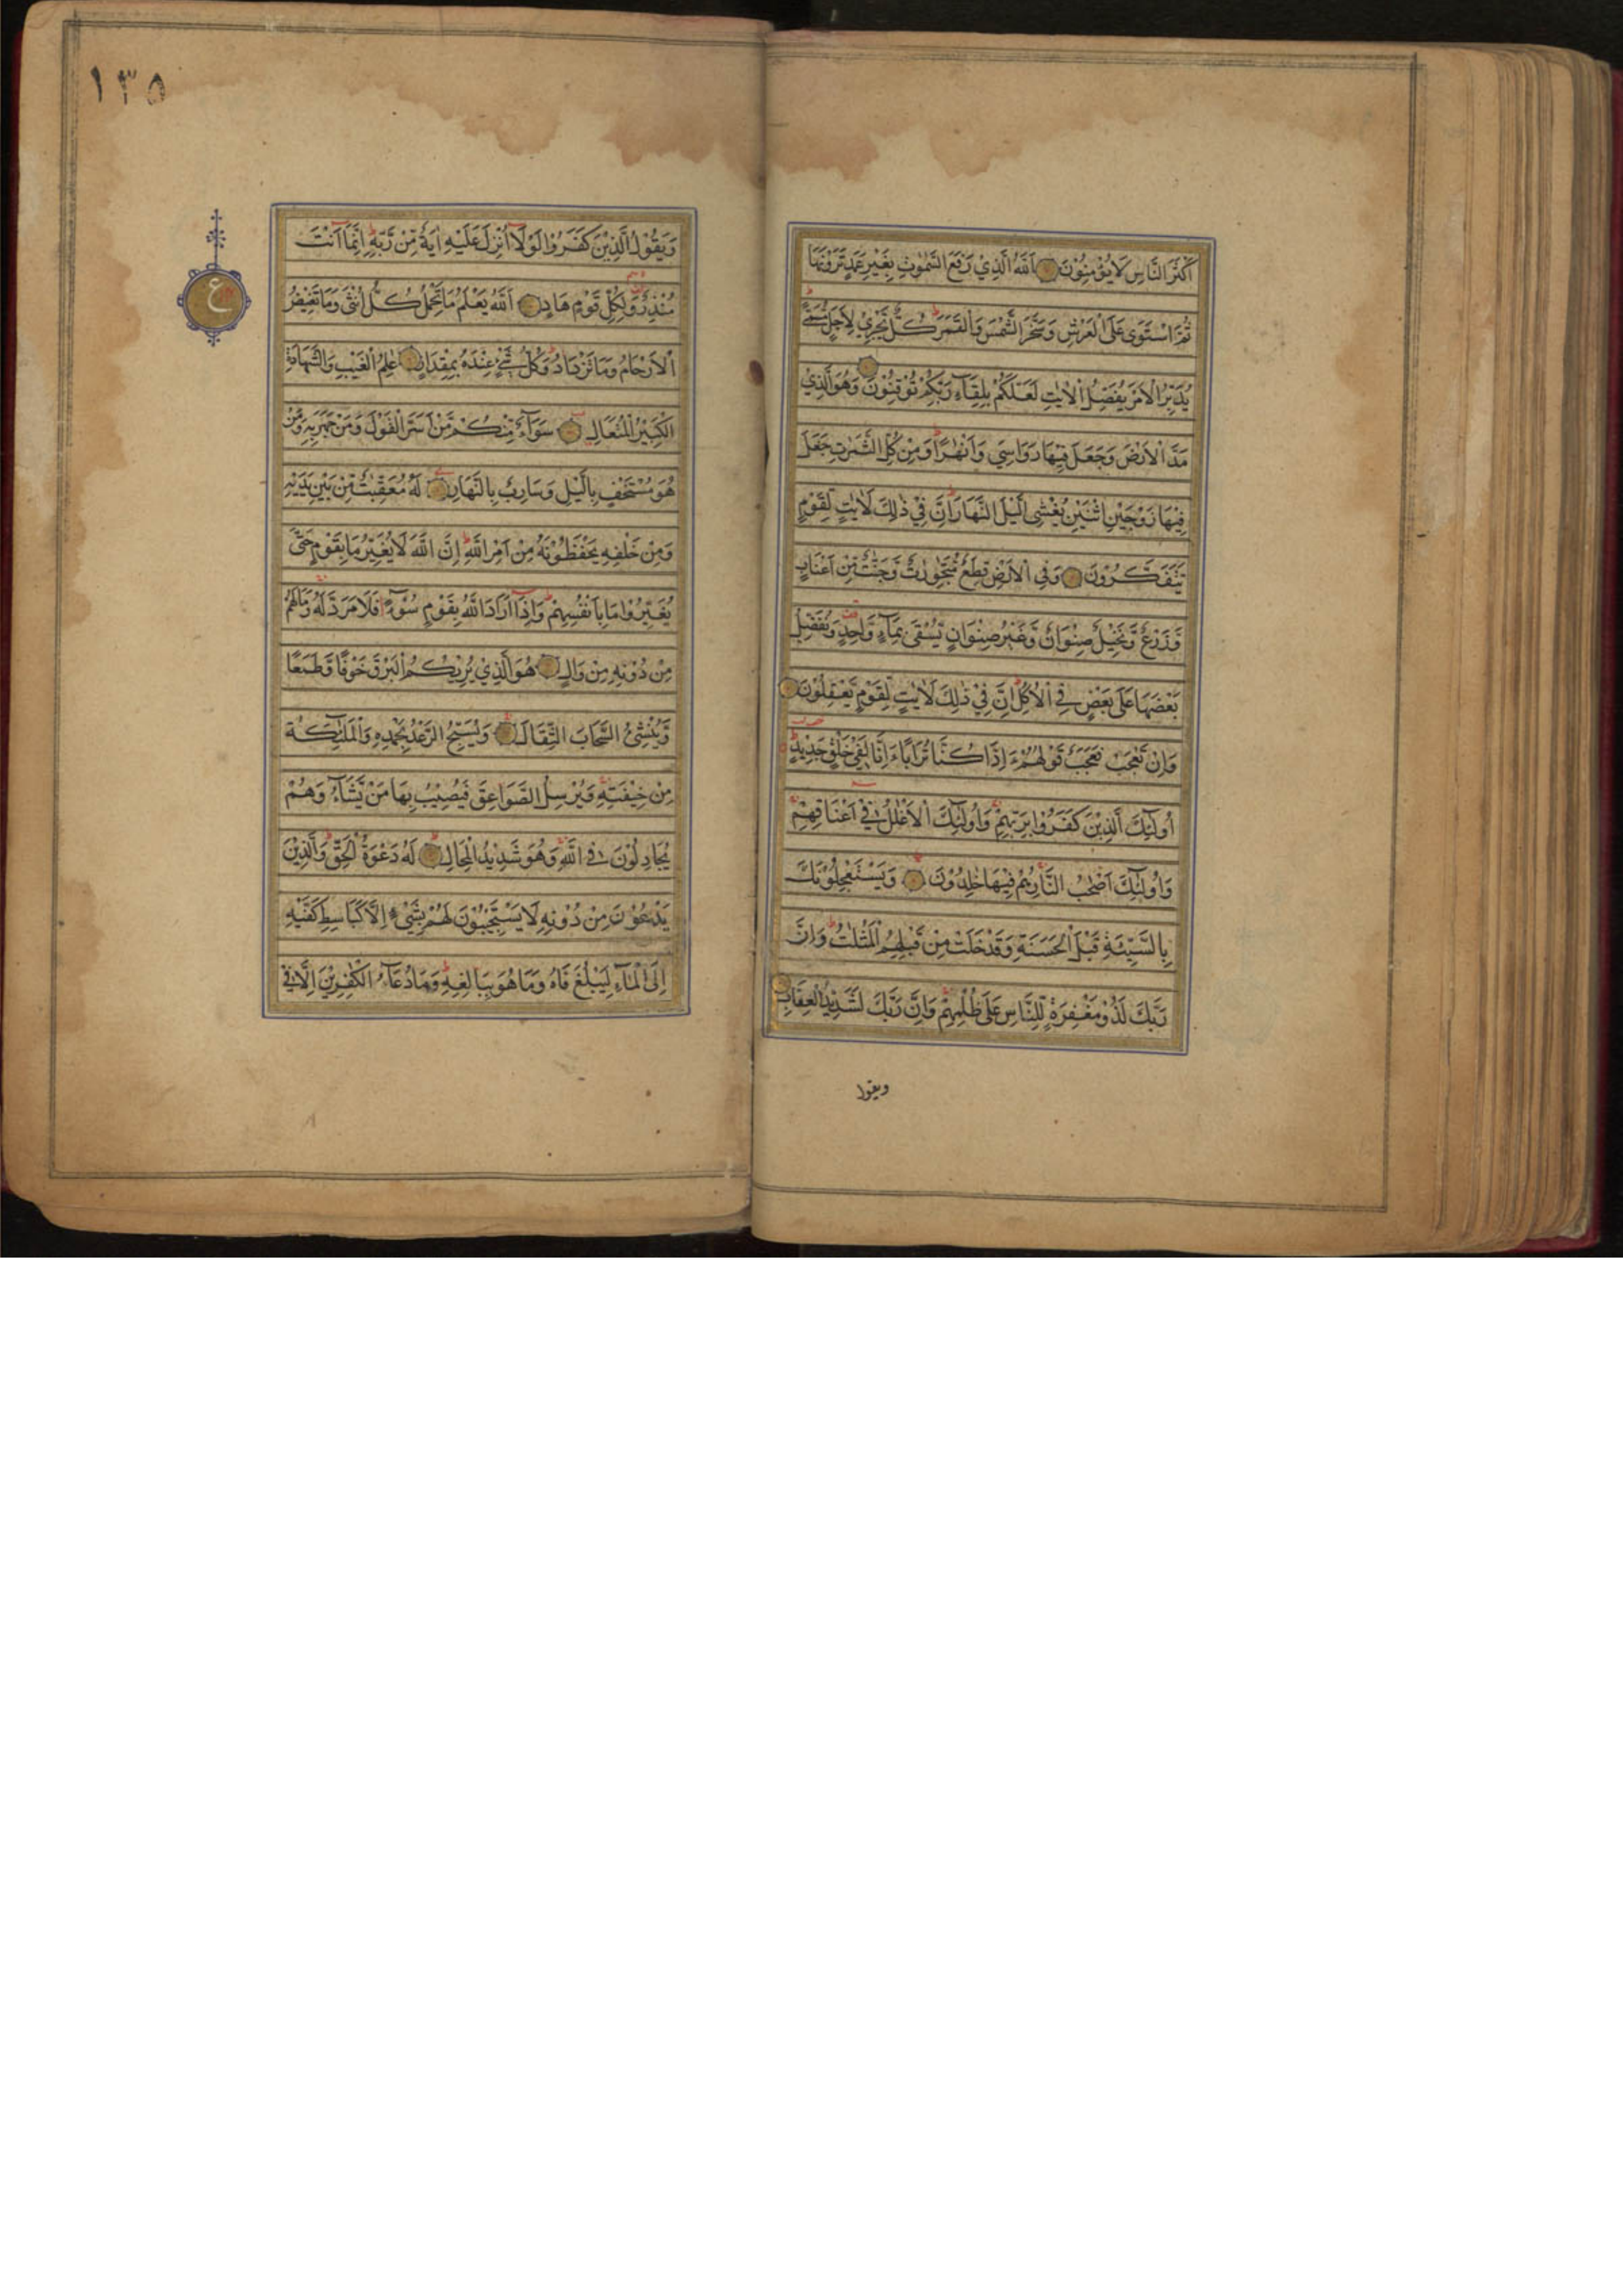 اَكْثَرَ النَّاسِ لَا يُؤْمِنُوْنَ اَللّٰهُ الَّذِيْ رَفَعَ السَّمٰوٰتِ بِغَيْرِ عَمَدٍ تَرَوْنَهَا
ثُمَّ اسْتَوٰى عَلَى الْعَرْشِ وَسَخَّرَ الشَّمْسَ وَالْقَمَرَ كُلٌّ يَّجْرِيْ لِاَجَلٍ مُّسَمًّى
يُدَبِّرُ الْاَمْرَ يُفَصِّلُ الْاٰيٰتِ لَعَلَّكُمْ بِلِقَآءِ رَبِّكُمْ تُوْقِنُوْنَ وَهُوَ الَّذِيْ
مَدَّ الْاَرْضَ وَجَعَلَ فِيْهَا رَوَاسِيَ وَاَنْهٰرًا وَمِنْ كُلِّ الثَّمَرٰتِ جَعَلَ
فِيْهَا زَوْجَيْنِ اثْنَيْنِ يُغْشِي الَّيْلَ النَّهَارَ اِنَّ فِيْ ذٰلِكَ لَاٰيٰتٍ لِّقَوْمٍ
يَّتَفَكَّرُوْنَ وَفِي الْاَرْضِ قِطَعٌ مُّتَجٰوِرٰتٌ وَّجَنّٰتٌ مِّنْ اَعْنَابٍ
وَّزَرْعٌ وَّنَخِيْلٌ صِنْوَانٌ وَّغَيْرُ صِنْوَانٍ يُّسْقٰى بِمَآءٍ وَّاحِدٍ وَنُفَضِّلُ
بَعْضَهَا عَلٰى بَعْضٍ فِي الْاُكُلِ اِنَّ فِيْ ذٰلِكَ لَاٰيٰتٍ لِّقَوْمٍ يَّعْقِلُوْنَ
وَاِنْ تَعْجَبْ فَعَجَبٌ قَوْلُهُمْ ءَاِذَا كُنَّا تُرَابًا ءَاِنَّا لَفِيْ خَلْقٍ جَدِيْدٍ
اُولٰٓئِكَ الَّذِيْنَ كَفَرُوْا بِرَبِّهِمْ وَاُولٰٓئِكَ الْاَغْلٰلُ فِيْ اَعْنَاقِهِمْ
وَاُولٰٓئِكَ اَصْحٰبُ النَّارِ هُمْ فِيْهَا خٰلِدُوْنَ وَيَسْتَعْجِلُوْنَكَ
بِالسَّيِّئَةِ قَبْلَ الْحَسَنَةِ وَقَدْ خَلَتْ مِنْ قَبْلِهِمُ الْمَثُلٰتُ وَاِنَّ
رَبَّكَ لَذُوْ مَغْفِرَةٍ لِّلنَّاسِ عَلٰى ظُلْمِهِمْ وَاِنَّ رَبَّكَ لَشَدِيْدُ الْعِقَابِ
ويقول
١٣٥
وَيَقُوْلُ الَّذِيْنَ كَفَرُوْا لَوْلَآ اُنْزِلَ عَلَيْهِ اٰيَةٌ مِّنْ رَّبِّهٖ اِنَّمَآ اَنْتَ
مُنْذِرٌ وَّلِكُلِّ قَوْمٍ هَادٍ اَللّٰهُ يَعْلَمُ مَا تَحْمِلُ كُلُّ اُنْثٰى وَمَا تَغِيْضُ
الْاَرْحَامُ وَمَا تَزْدَادُ وَكُلُّ شَيْءٍ عِنْدَهٗ بِمِقْدَارٍ عٰلِمُ الْغَيْبِ وَالشَّهَادَةِ
الْكَبِيْرُ الْمُتَعَالِ سَوَآءٌ مِّنْكُمْ مَّنْ اَسَرَّ الْقَوْلَ وَمَنْ جَهَرَ بِهٖ وَمَنْ
هُوَ مُسْتَخْفٍ بِالَّيْلِ وَسَارِبٌ بِالنَّهَارِ لَهٗ مُعَقِّبٰتٌ مِّنْ بَيْنِ يَدَيْهِ
وَمِنْ خَلْفِهٖ يَحْفَظُوْنَهٗ مِنْ اَمْرِ اللّٰهِ اِنَّ اللّٰهَ لَا يُغَيِّرُ مَا بِقَوْمٍ حَتّٰى
يُغَيِّرُوْا مَا بِاَنْفُسِهِمْ وَاِذَآ اَرَادَ اللّٰهُ بِقَوْمٍ سُوْٓءًا فَلَا مَرَدَّ لَهٗ وَمَا لَهُمْ
مِنْ دُوْنِهٖ مِنْ وَّالٍ هُوَ الَّذِيْ يُرِيْكُمُ الْبَرْقَ خَوْفًا وَّطَمَعًا
وَّيُنْشِئُ السَّحَابَ الثِّقَالَ وَيُسَبِّحُ الرَّعْدُ بِحَمْدِهٖ وَالْمَلٰٓئِكَةُ
مِنْ خِيْفَتِهٖ وَيُرْسِلُ الصَّوَاعِقَ فَيُصِيْبُ بِهَا مَنْ يَّشَآءُ وَهُمْ
يُجَادِلُوْنَ فِي اللّٰهِ وَهُوَ شَدِيْدُ الْمِحَالِ لَهٗ دَعْوَةُ الْحَقِّ وَالَّذِيْنَ
يَدْعُوْنَ مِنْ دُوْنِهٖ لَا يَسْتَجِيْبُوْنَ لَهُمْ بِشَيْءٍ اِلَّا كَبَاسِطِ كَفَّيْهِ
اِلَى الْمَآءِ لِيَبْلُغَ فَاهُ وَمَا هُوَ بِبَالِغِهٖ وَمَا دُعَآءُ الْكٰفِرِيْنَ اِلَّا فِيْ
ع